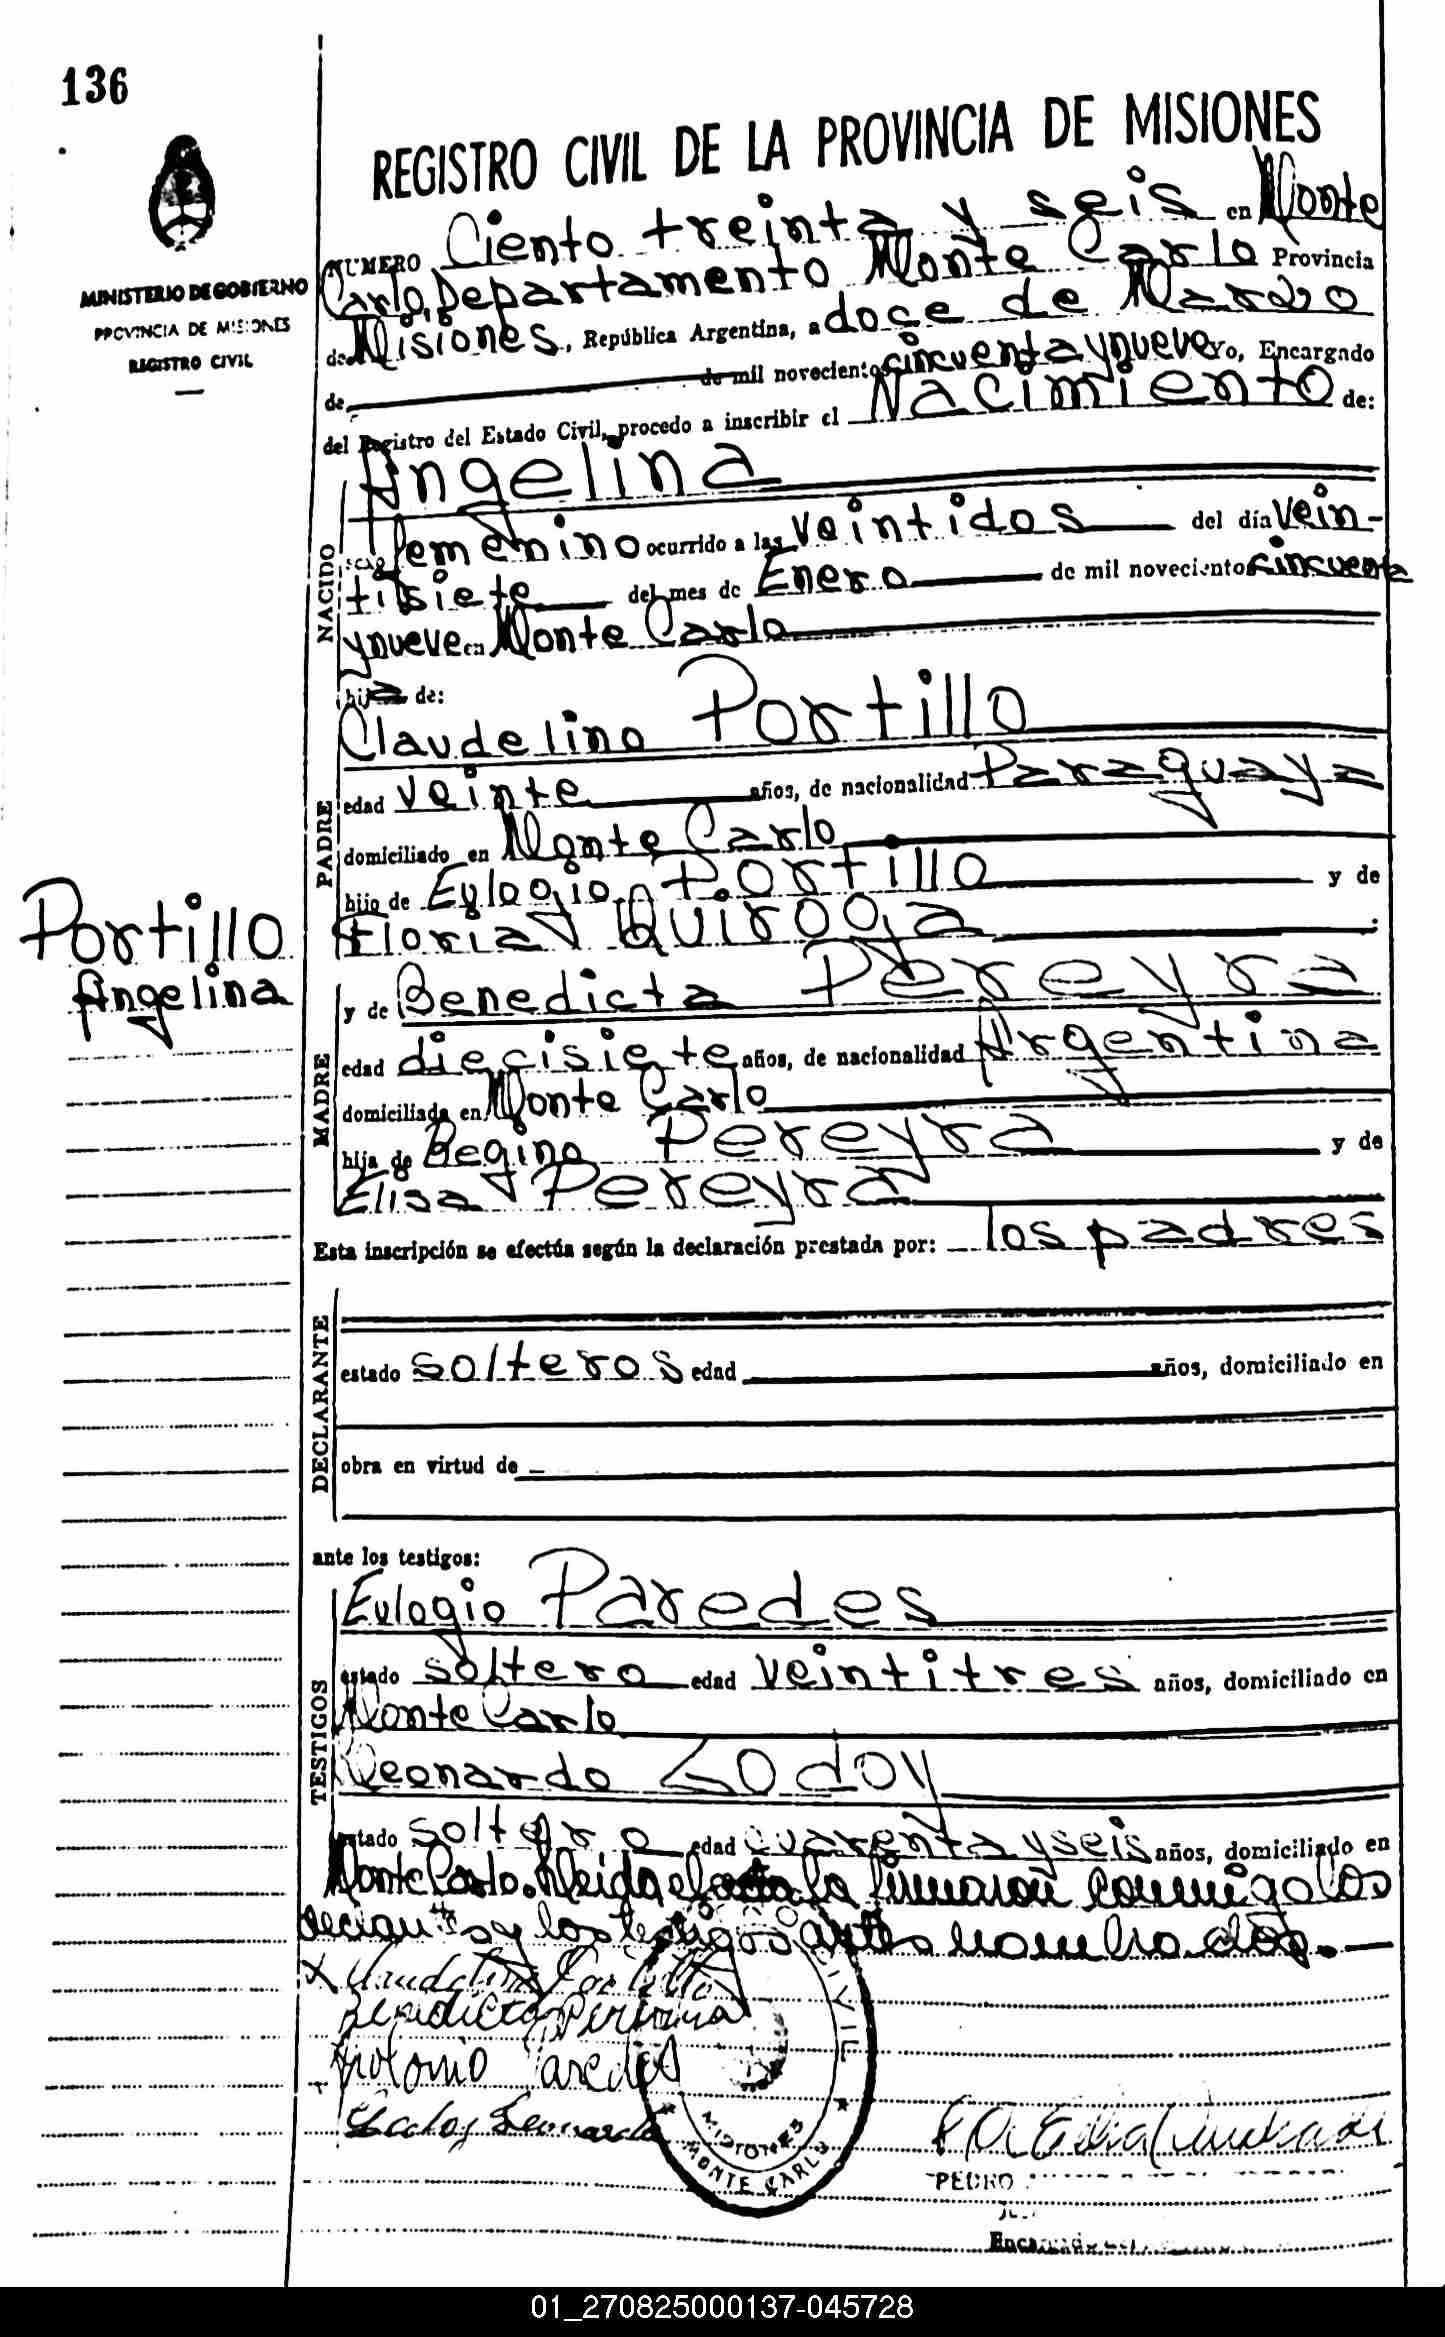 136
MINISTERIO DE GOBIERNO
PROVINCIA DE MISIONES
REGISTRO CIVIL
REGISTRO CIVIL DE LA PROVINCIA DE MISIONES
NUMERO Ciento treinta y seis en Monte
Carlo, Departamento Monte Carlo Provincia
de Misiones, República Argentina, a doce de Marzo
de de mil novecientos cincuenta y nueve Yo, Encargado
del Registro del Estado Civil, procedo a inscribir el Nacimiento de:
NACIDO
Angelina
sexo femenino ocurrido a las veintidos del día vein-
tisiete del mes de Enero de mil novecientos cincuenta
y nueve en Monte Carlo
hija de:
PADRE
Claudelino Portillo
edad veinte años, de nacionalidad Paraguaya
domiciliado en Monte Carlo
hijo de Eulogio Portillo y de
Floria Quiroga
Portillo
Angelina
MADRE
y de Benedicta Pereyra
edad diecisiete años, de nacionalidad Argentina
domiciliada en Monte Carlo
hija de Regino Pereyra y de
Elisa Pereyra
Esta inscripción se efectúa según la declaración prestada por: los padres
DECLARANTE
estado solteros edad años, domiciliado en
obra en virtud de
ante los testigos:
TESTIGOS
Eulogio Paredes
estado soltero edad veintitres años, domiciliado en
Monte Carlo
Leonardo Godoy
estado soltero edad cuarenta y seis años, domiciliado en
Monte Carlo. Leida el acta la firmaron conmigo los
declarantes y los testigos antes nombrados.
Claudelino Portillo
Benedicta
Paredes
Leonardo
CIVIL
MISIONES
MONTE CARLO
PEDRO
01_270825000137-045728